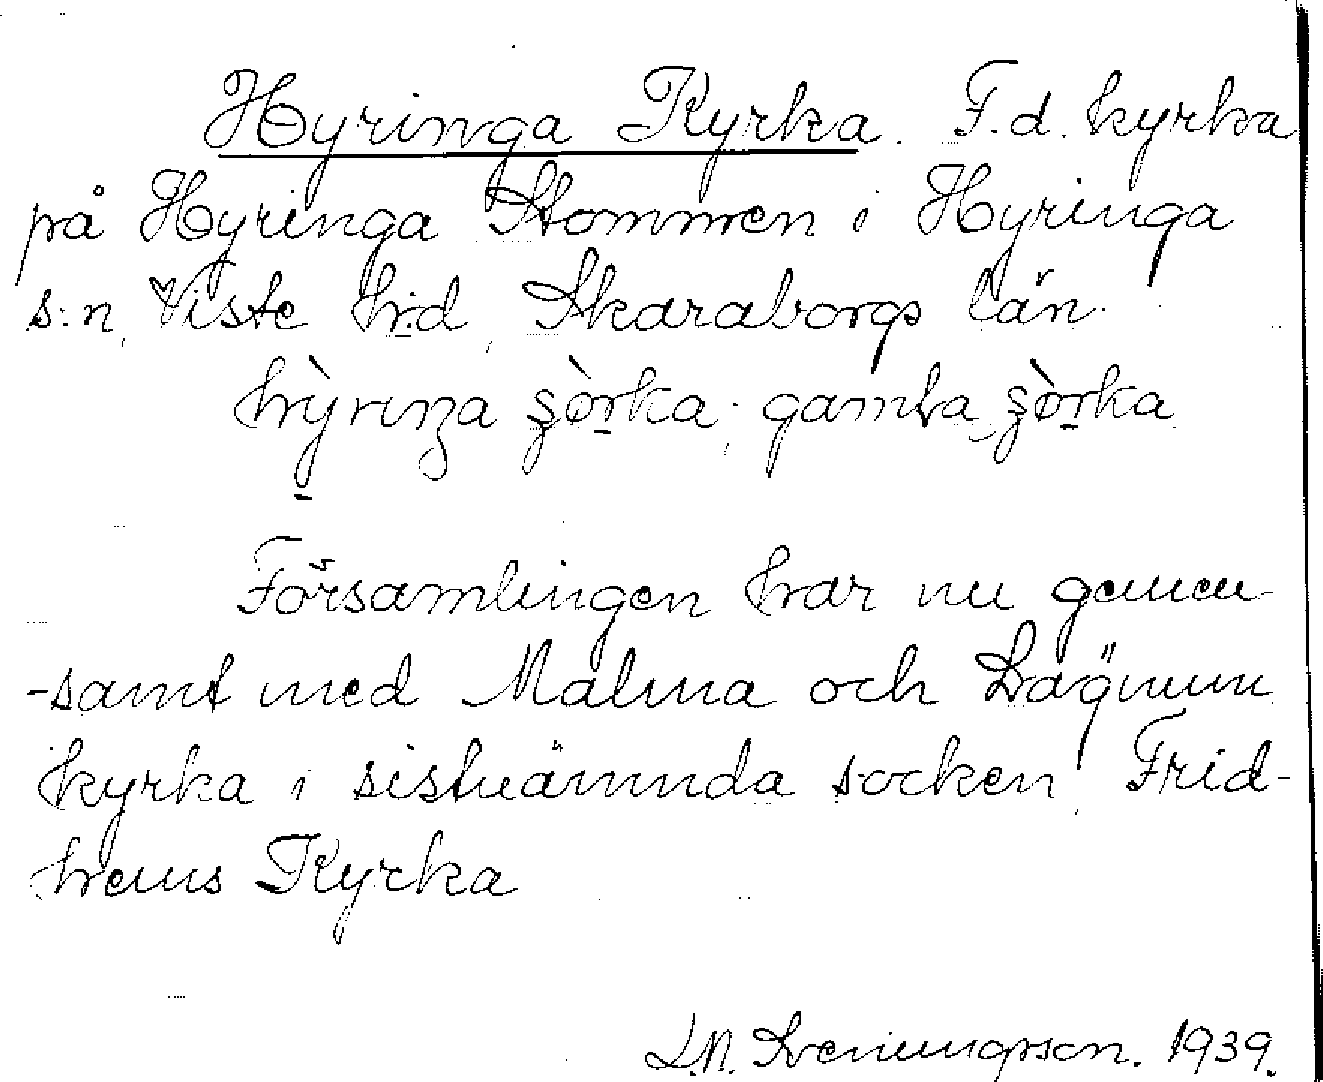 Hyringa Kyrka. F.d. kyrka
på Hyringa Stommen i Hyringa
s:n, Viste h:d, Skaraborgs län.
hỳrıŋa şö̀rka; gamla şö̀rka
Församlingen har nu gemen-
-samt med Malma och Lägnum
kyrka i sistnämnda socken, Frid-
hems Kyrka
L.N. 1939.